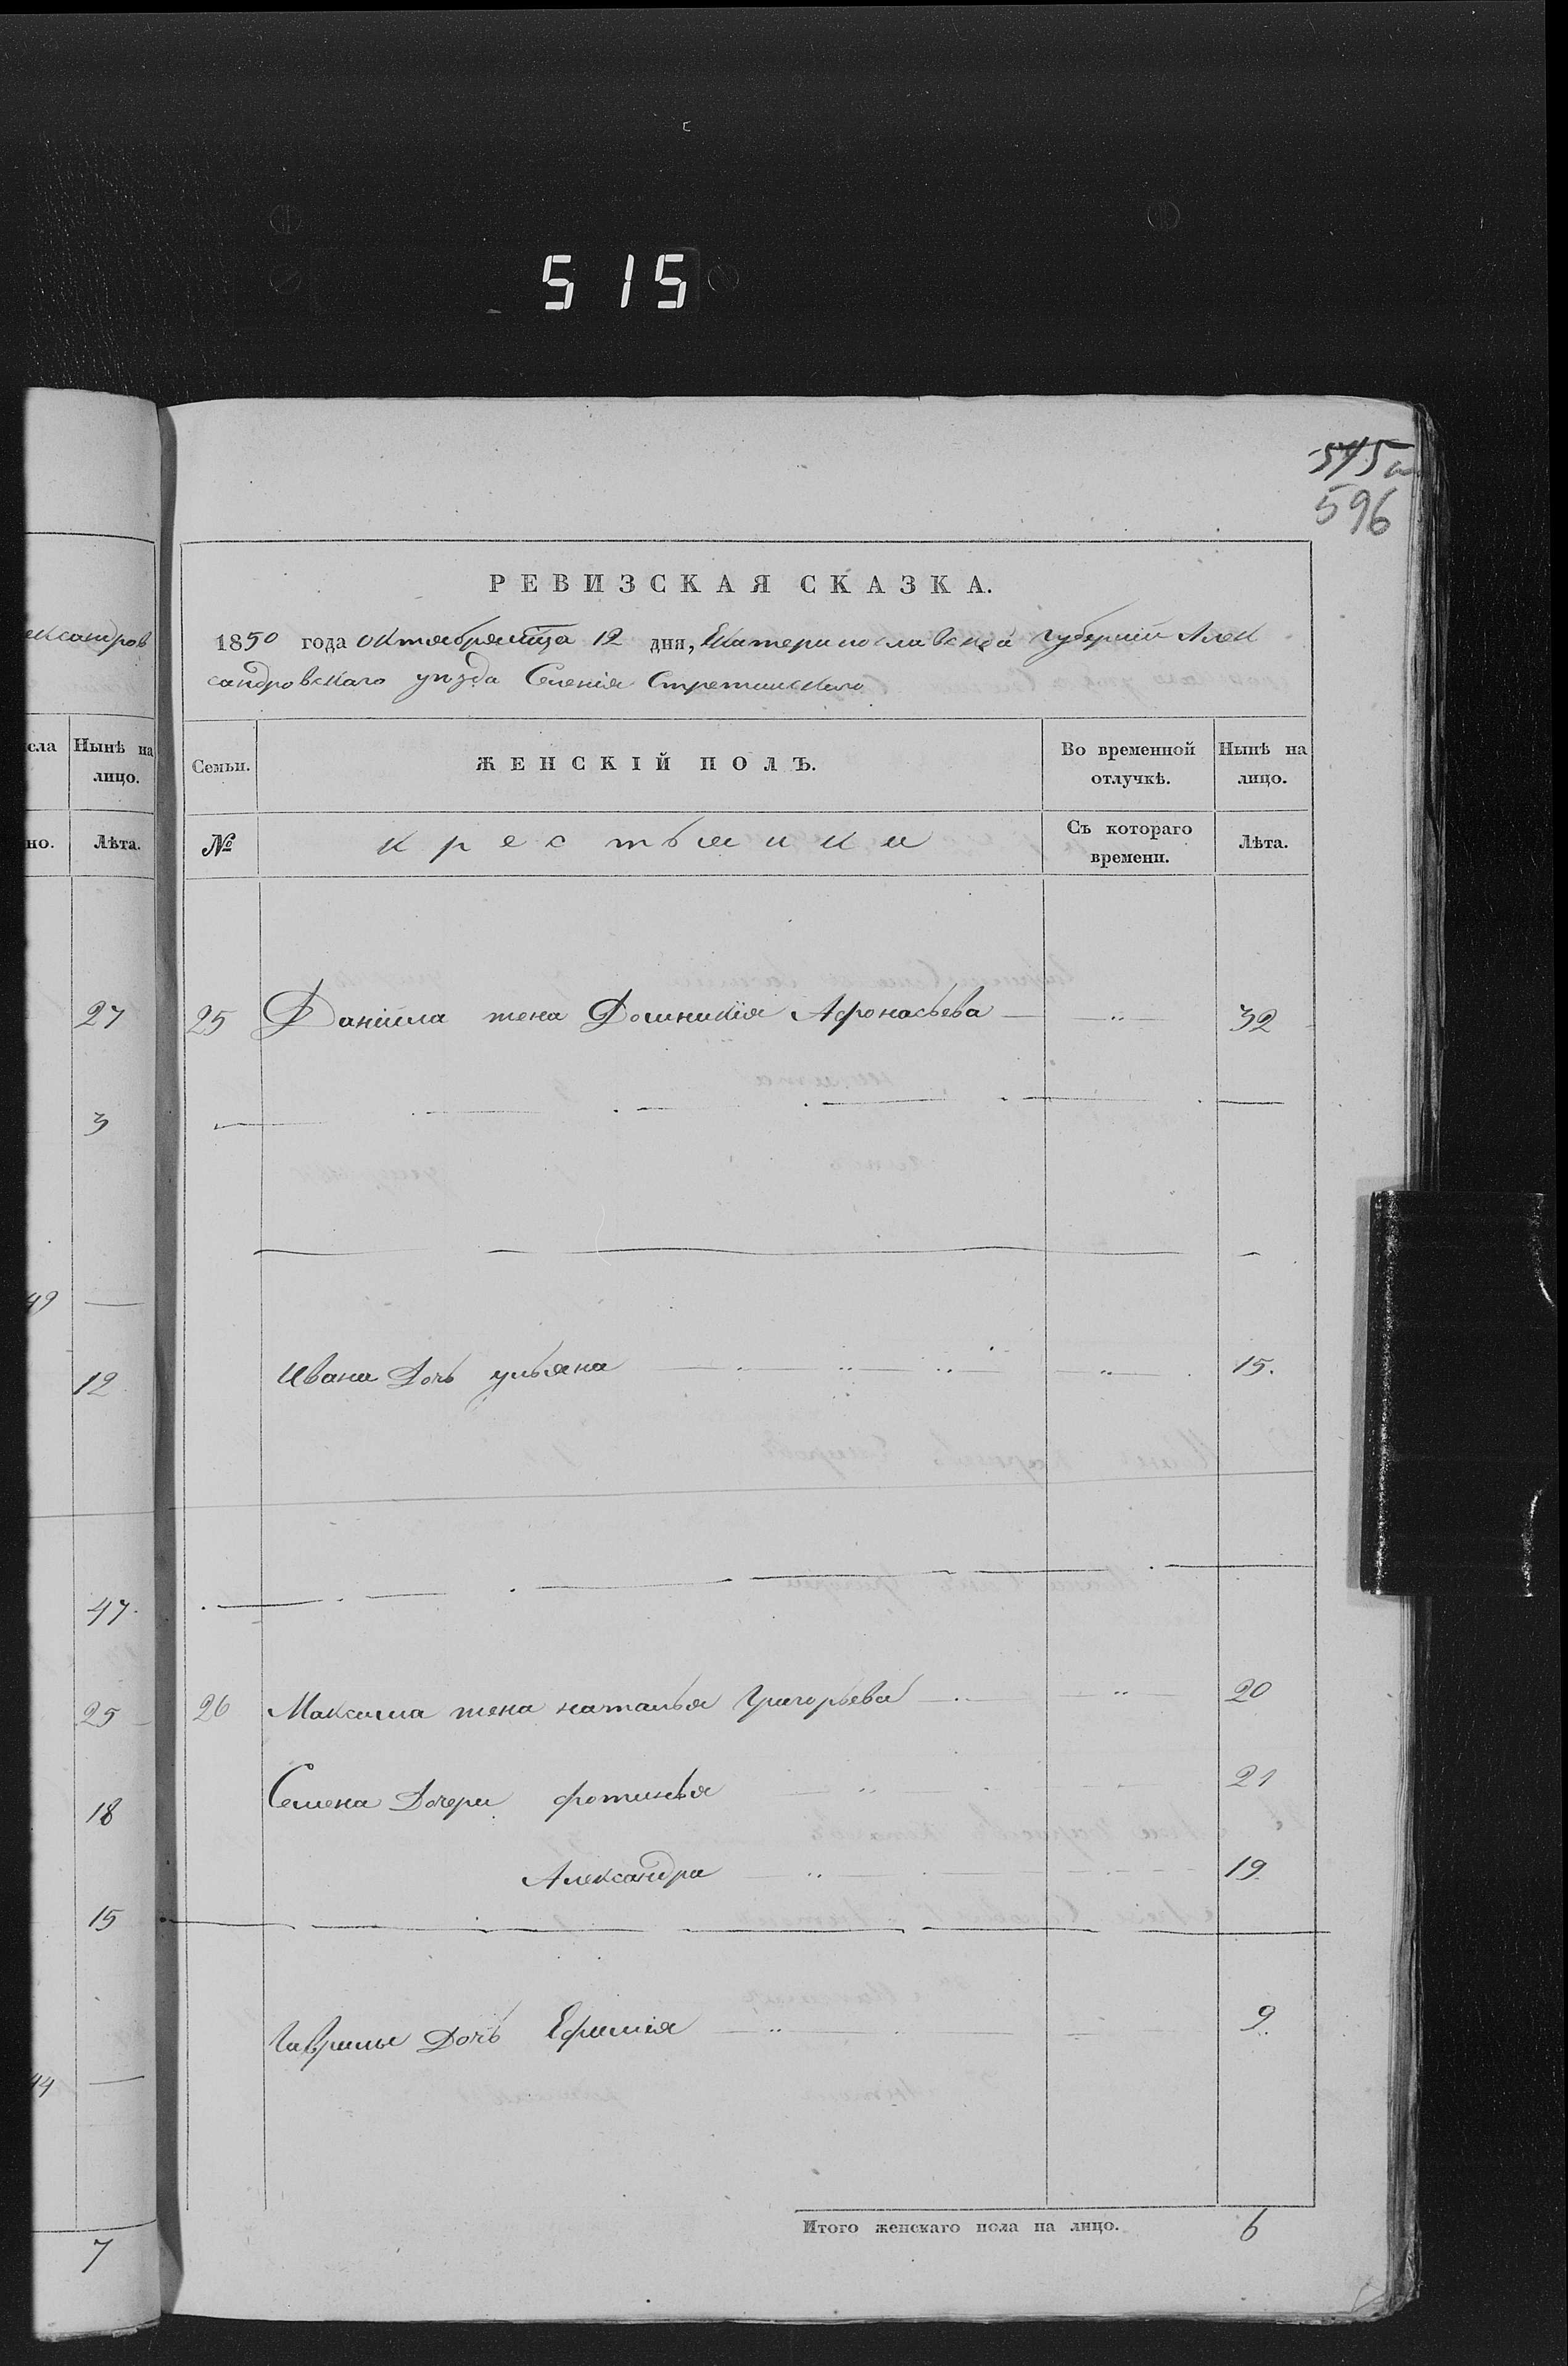 515
545
596
ександров
сла Нынѣ на лицо.
но. Лѣта.
27
3
49
12
47
25
18
15
44
7
РЕВИЗСКАЯ СКАЗКА.
1850 года октября мца 12 дня, Екатеринославской губернии Алек
сандровскаго уѣзда Селенія Стретинскаго
Семьи. ЖЕНСКІЙ ПОЛЪ. Во временной отлучкѣ. Нынѣ на лицо.
№ крестьянки Съ котораго времени. Лѣта.
25 Даніила жена Домникія Афонасьева — " — 32
Ивана Дочь ульяна — " — 15.
26 Максима жена наталья Григорьева — " — 20
Семена Дочери фотинья — " — 21
Александра — " — 19
Гаврилы Дочь Ефимія — " — 9
Итого женскаго пола на лицо. 6